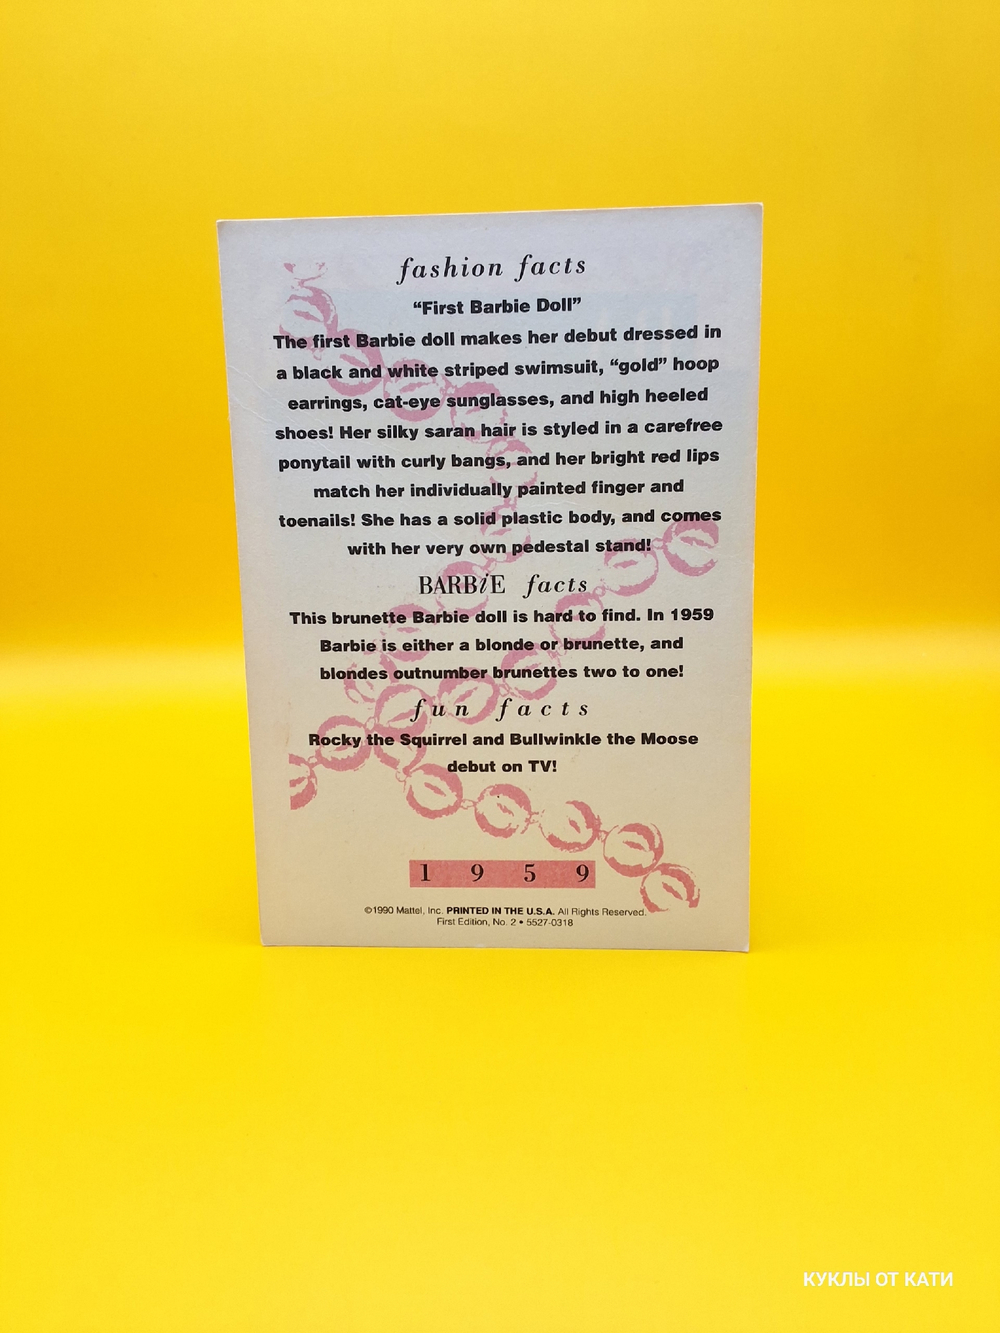 fashion facts
“First Barbie Doll”
The first Barbie doll makes her debut dressed in
a black and white striped swimsuit, “gold” hoop
earrings, cat-eye sunglasses, and high heeled
shoes! Her silky saran hair is styled in a carefree
ponytail with curly bangs, and her bright red lips
match her individually painted finger and
toenails! She has a solid plastic body, and comes
with her very own pedestal stand!
BARBiE facts
This brunette Barbie doll is hard to find. In 1959
Barbie is either a blonde or brunette, and
blondes outnumber brunettes two to one!
fun facts
Rocky the Squirrel and Bullwinkle the Moose
debut on TV!
1959
©1990 Mattel, Inc. PRINTED IN THE U.S.A. All Rights Reserved.
First Edition, No. 2 • 5527-0318
КУКЛЫ ОТ КАТИ